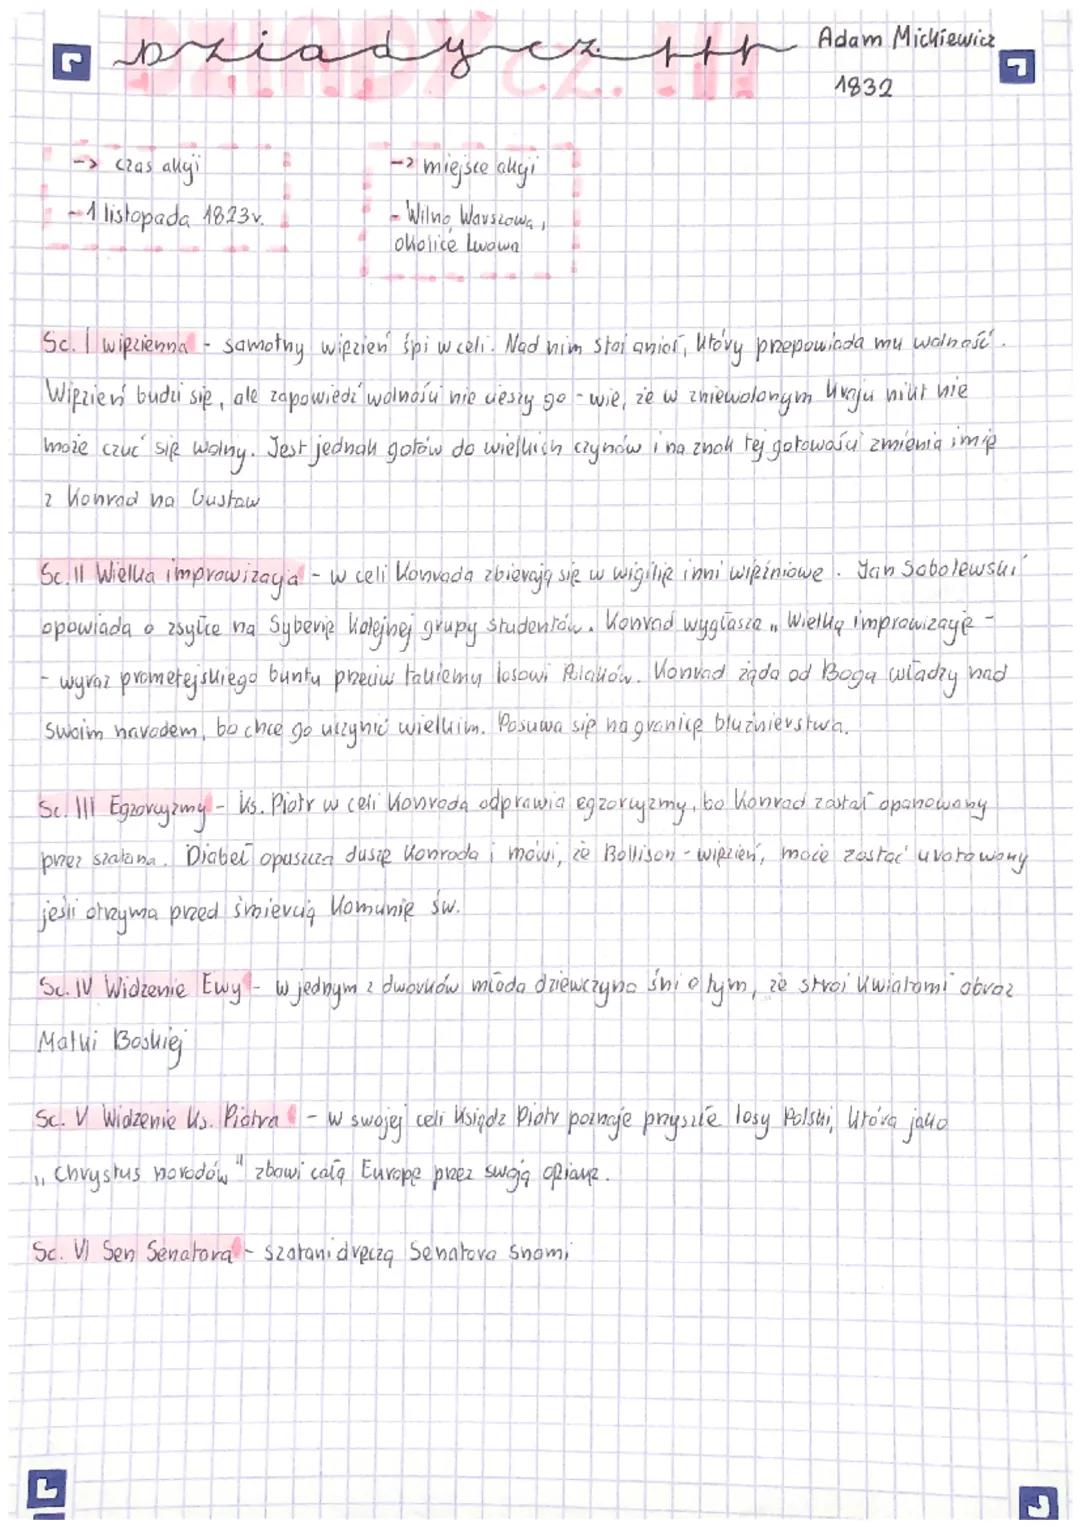 Dziady cz. III
Adam Mickiewicz
1832
-> czas akcji
- 1 listopada 1823r.
-> miejsce akcji
- Wilno, Warszawa,
okolice Lwowa
Sc. I więzienna - samotny więzień śpi w celi. Nad nim stoi anioł, który przepowiada mu wolność.
Więzień budzi się, ale zapowiedź wolności nie cieszy go - wie, że w zniewolonym kraju nikt nie
może czuć się wolny. Jest jednak gotów do wielkich czynów i na znak tej gotowości zmienia imię
z Konrad na Gustaw
Sc. II Wielka improwizacja - w celi Konrada zbierają się w wigilię inni więźniowie. Jan Sobolewski
opowiada o zsyłce na Syberię kolejnej grupy studentów. Konrad wygłasza „Wielką improwizację -
- wyraz prometejskiego buntu przeciw takiemu losowi Polaków. Konrad żąda od Boga władzy nad
swoim narodem, bo chce go uczynić wielkim. Posuwa się na granicę bluźnierstwa.
Sc. III Egzorcyzmy - Ks. Piotr w celi Konrada odprawia egzorcyzmy, bo Konrad został opanowany
przez szatana. Diabeł opuszcza duszę Konrada i mówi, że Rollison - więzień, może zostać uratowany
jeśli otrzyma przed śmiercią Komunię św.
Sc. IV Widzenie Ewy - w jednym z dworków młoda dziewczyna śni o tym, że stroi kwiatami obraz
Matki Boskiej
Sc. V Widzenie Ks. Piotra - w swojej celi Ksiądz Piotr poznaje przyszłe losy Polski, która jako
„Chrystus narodów" zbawi całą Europę przez swoją ofiarę.
Sc. VI Sen Senatora - szatani dręczą Senatora snami